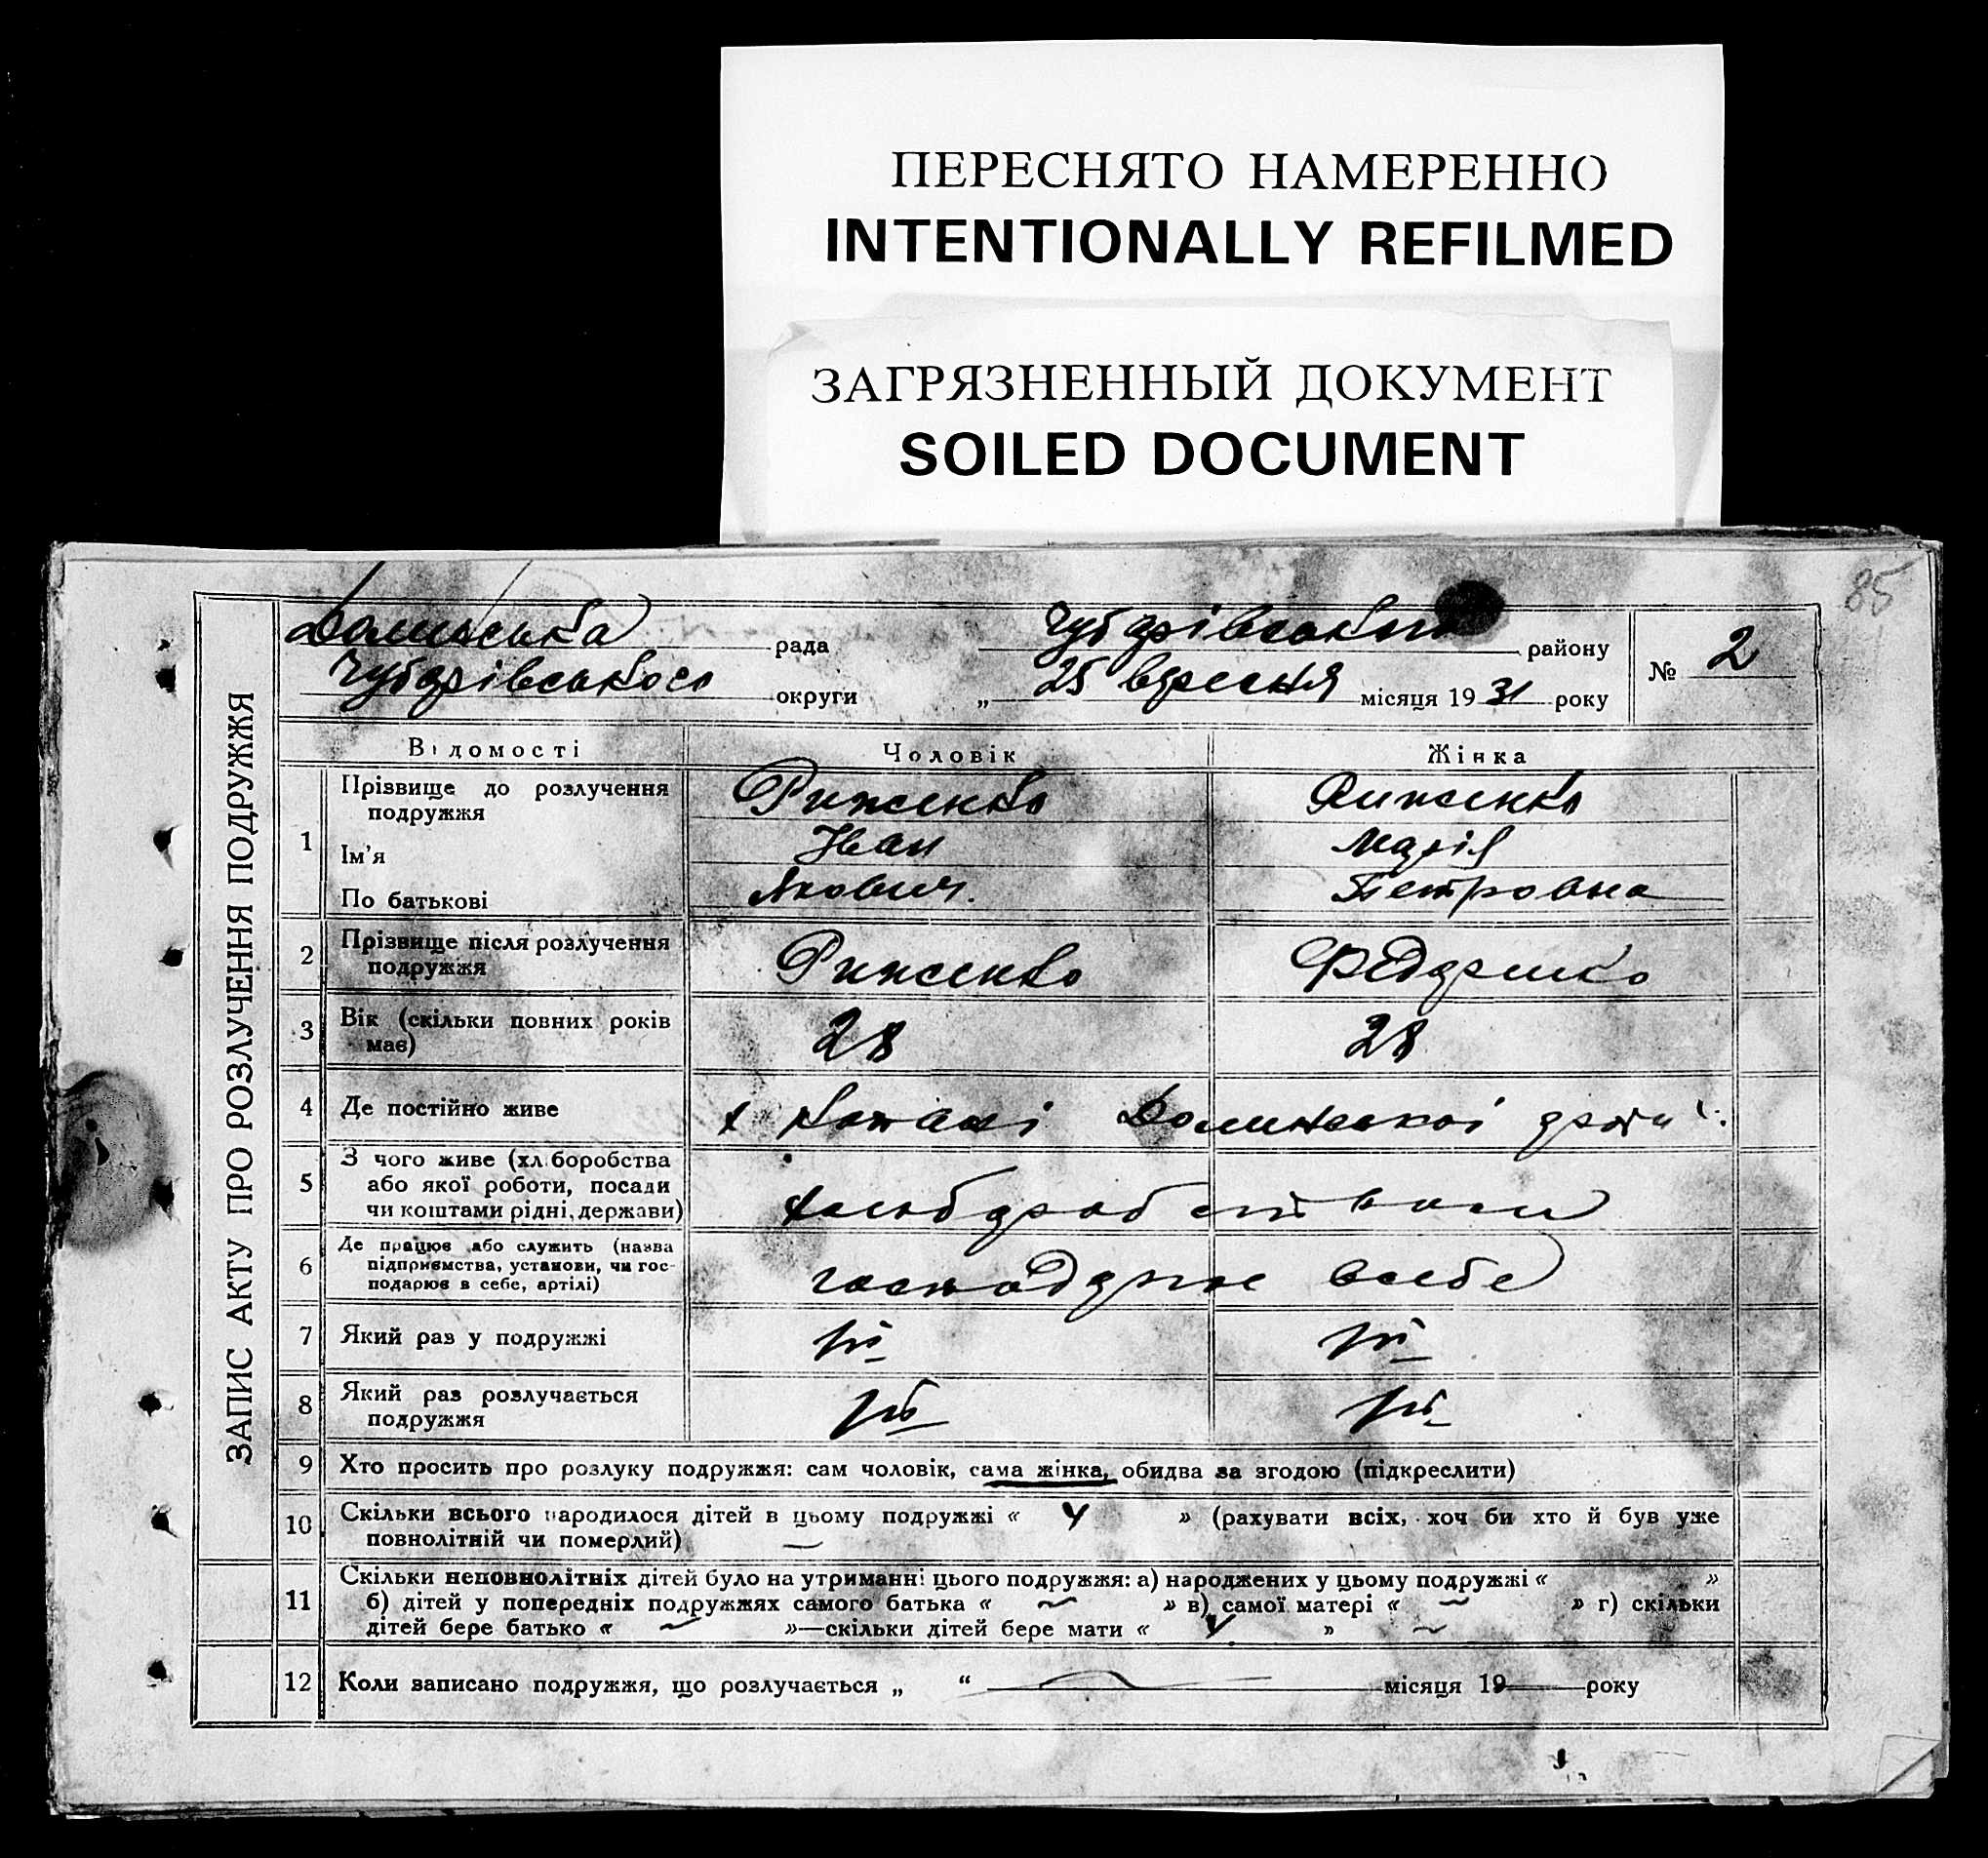 ПЕРЕСНЯТО НАМЕРЕННО
INTENTIONALLY REFILMED
ЗАГРЯЗНЕННЫЙ ДОКУМЕНТ
SOILED DOCUMENT
85
ЗАПИС АКТУ ПРО РОЗЛУЧЕННЯ ПОДРУЖЖЯ
Долинська рада Чубарівського району № 2
Чубарівського округи „ 25 вересня місяця 19 31 року
Відомості Чоловік Жінка
1 Прізвище до розлучення подружжя Риженко Риженко
Ім'я Іван Марія
По батькові Якович. Петровна
2 Прізвище після розлучення подружжя Риженко Федоренко
3 Вік (скільки повних років має) 28 28
4 Де постійно живе Долинської
5 З чого живе (хлiборобства
або якої роботи, посади
чи коштами рідні, держави)
6 Де працює або служить (назва
підприємства, установи, чи гос-
подарює в себе, артілі) господарює в себе
7 Який раз у подружжі
8 Який раз розлучається
подружжя
9 Хто просить про розлуку подружжя: сам чоловік, сама жінка, обидва за згодою (підкреслити)
10 Скільки всього народилося дітей в цьому подружжі « » (рахувати всіх, хоч би хто й був уже
повнолітній чи померлий)
11 Скільки неповнолітніх дітей було на утриманні цього подружжя: а) народжених у цьому подружжі « »
б) дітей у попередніх подружжях самого батька « » в) самої матері « » г) скільки
дітей бере батько « »—скільки дітей бере мати « »
12 Коли записано подружжя, що розлучається „ “ місяця 19 року